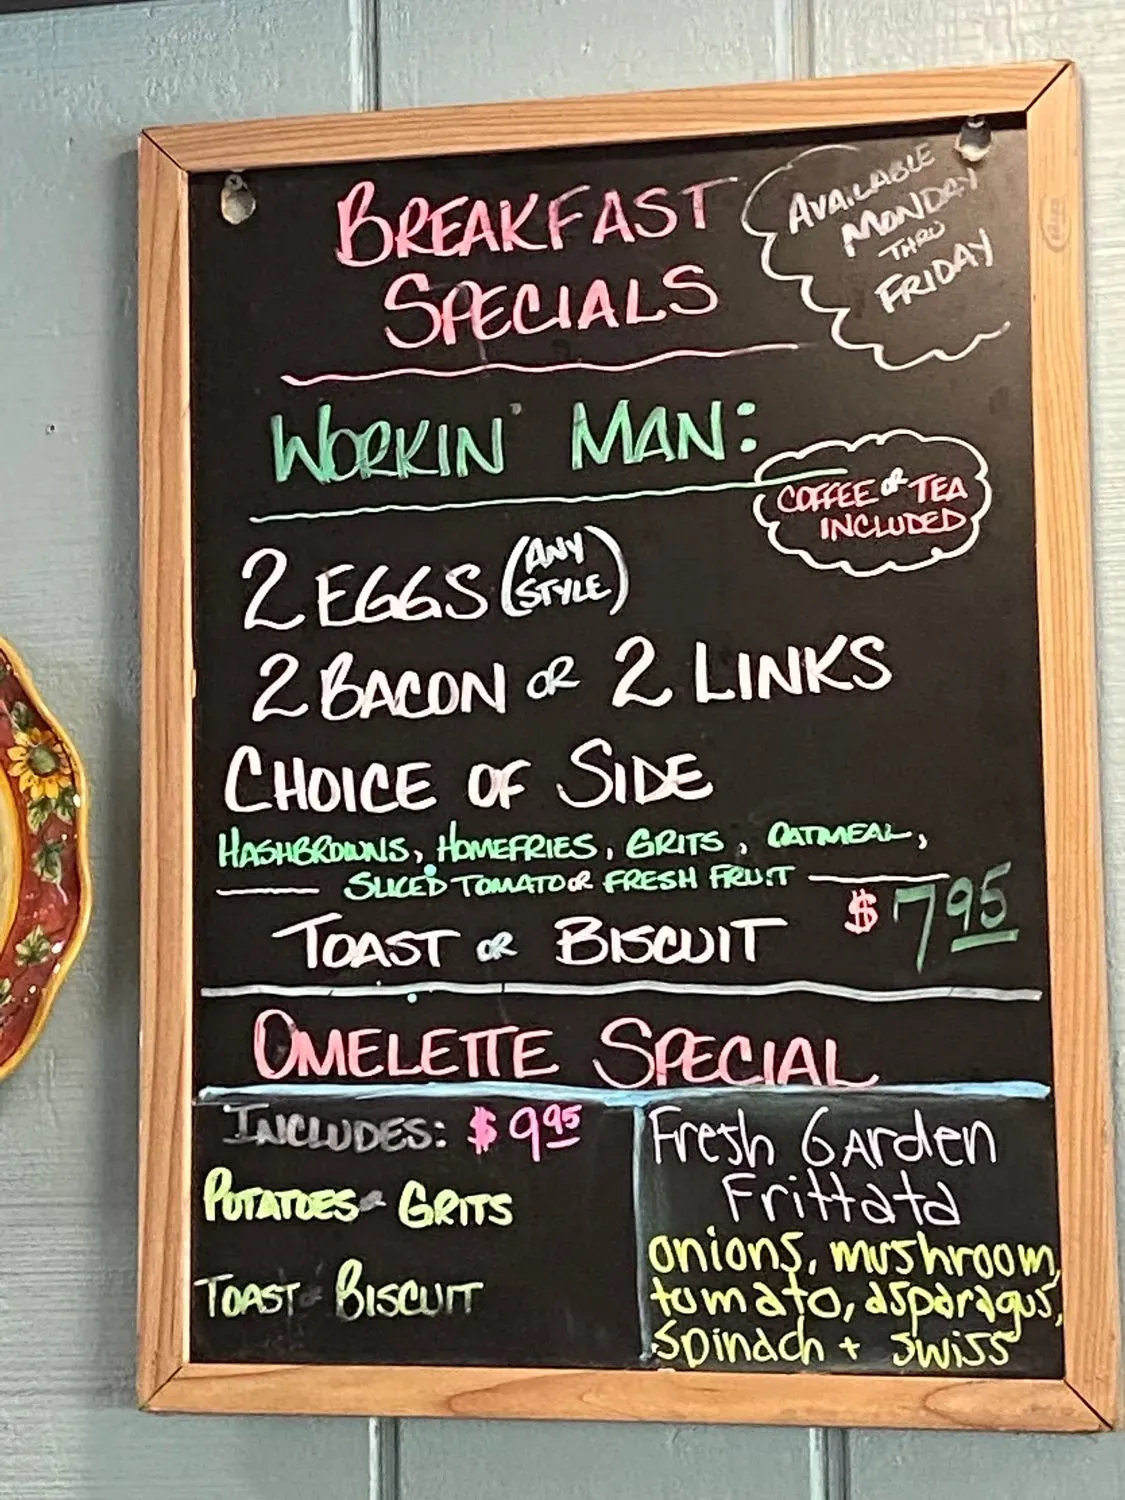 BREAKFAST
SPECIALS
AVAILABLE
MONDAY
THRU
FRIDAY
WORKIN' MAN:
COFFEE or TEA
INCLUDED
2 EGGS (ANY
STYLE)
2 BACON OR 2 LINKS
CHOICE OF SIDE
HASHBROWNS, HOMEFRIES, GRITS, OATMEAL,
SLICED TOMATO or FRESH FRUIT
$7.95
TOAST OR BISCUIT
OMELETTE SPECIAL
INCLUDES: $9.95
POTATOES or GRITS
TOAST or BISCUIT
Fresh Garden
Frittata
onions, mushroom,
tomato, asparagus,
spinach + swiss